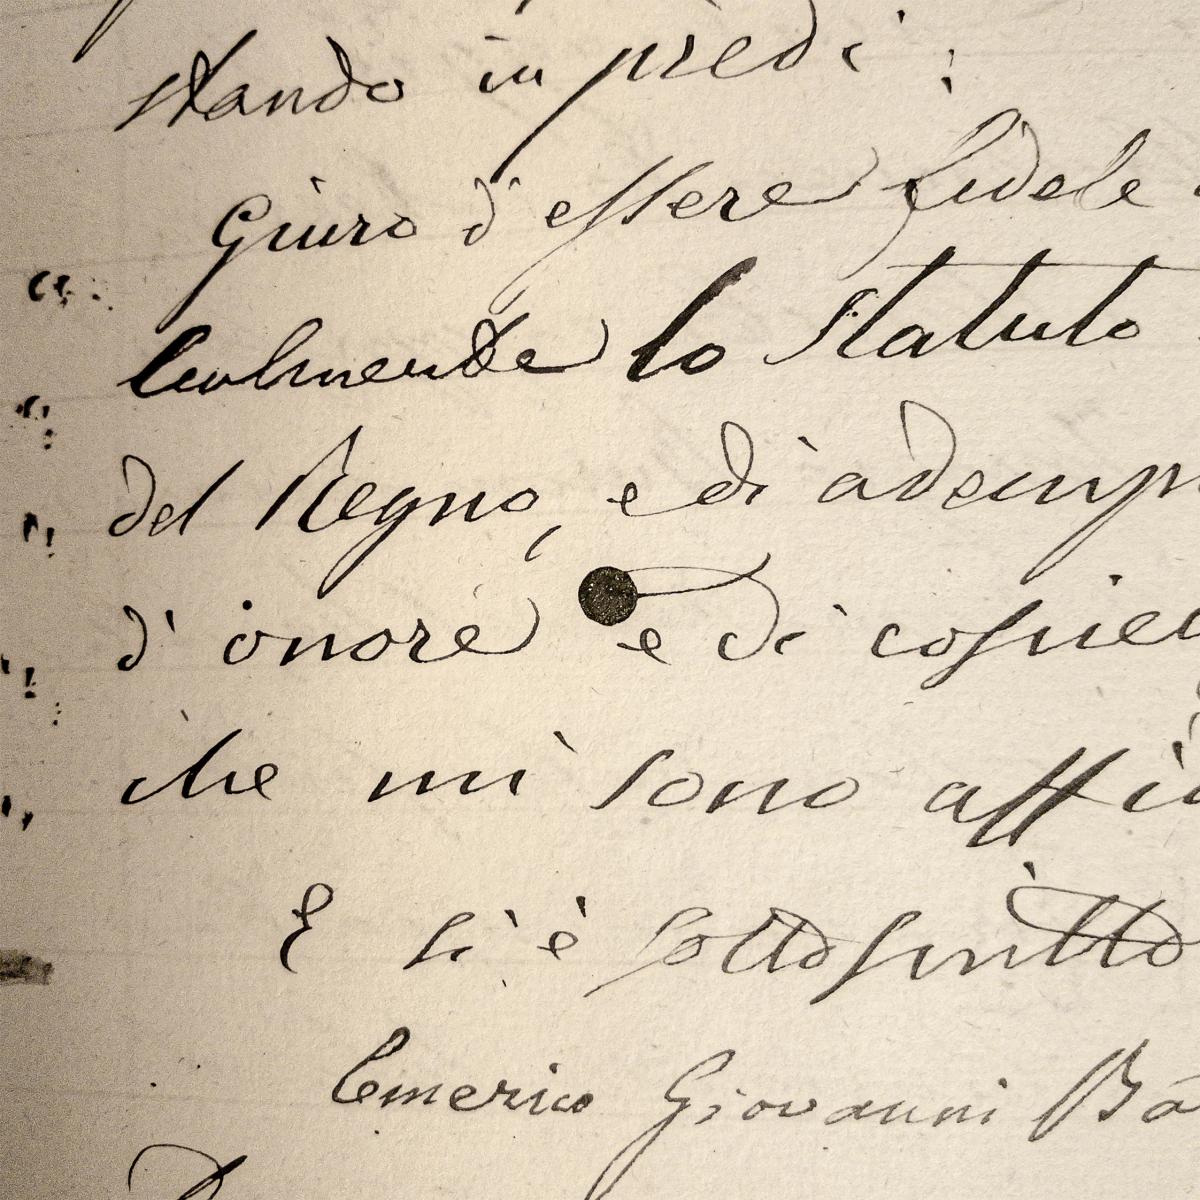 stando in piedi :
Giuro d'essere fedele
lealmente lo Statuto
del Regno, e di adempi
d'onore e di coscie
che mi sono affi
E si è sottoscritto
Emerico Giovanni Ba